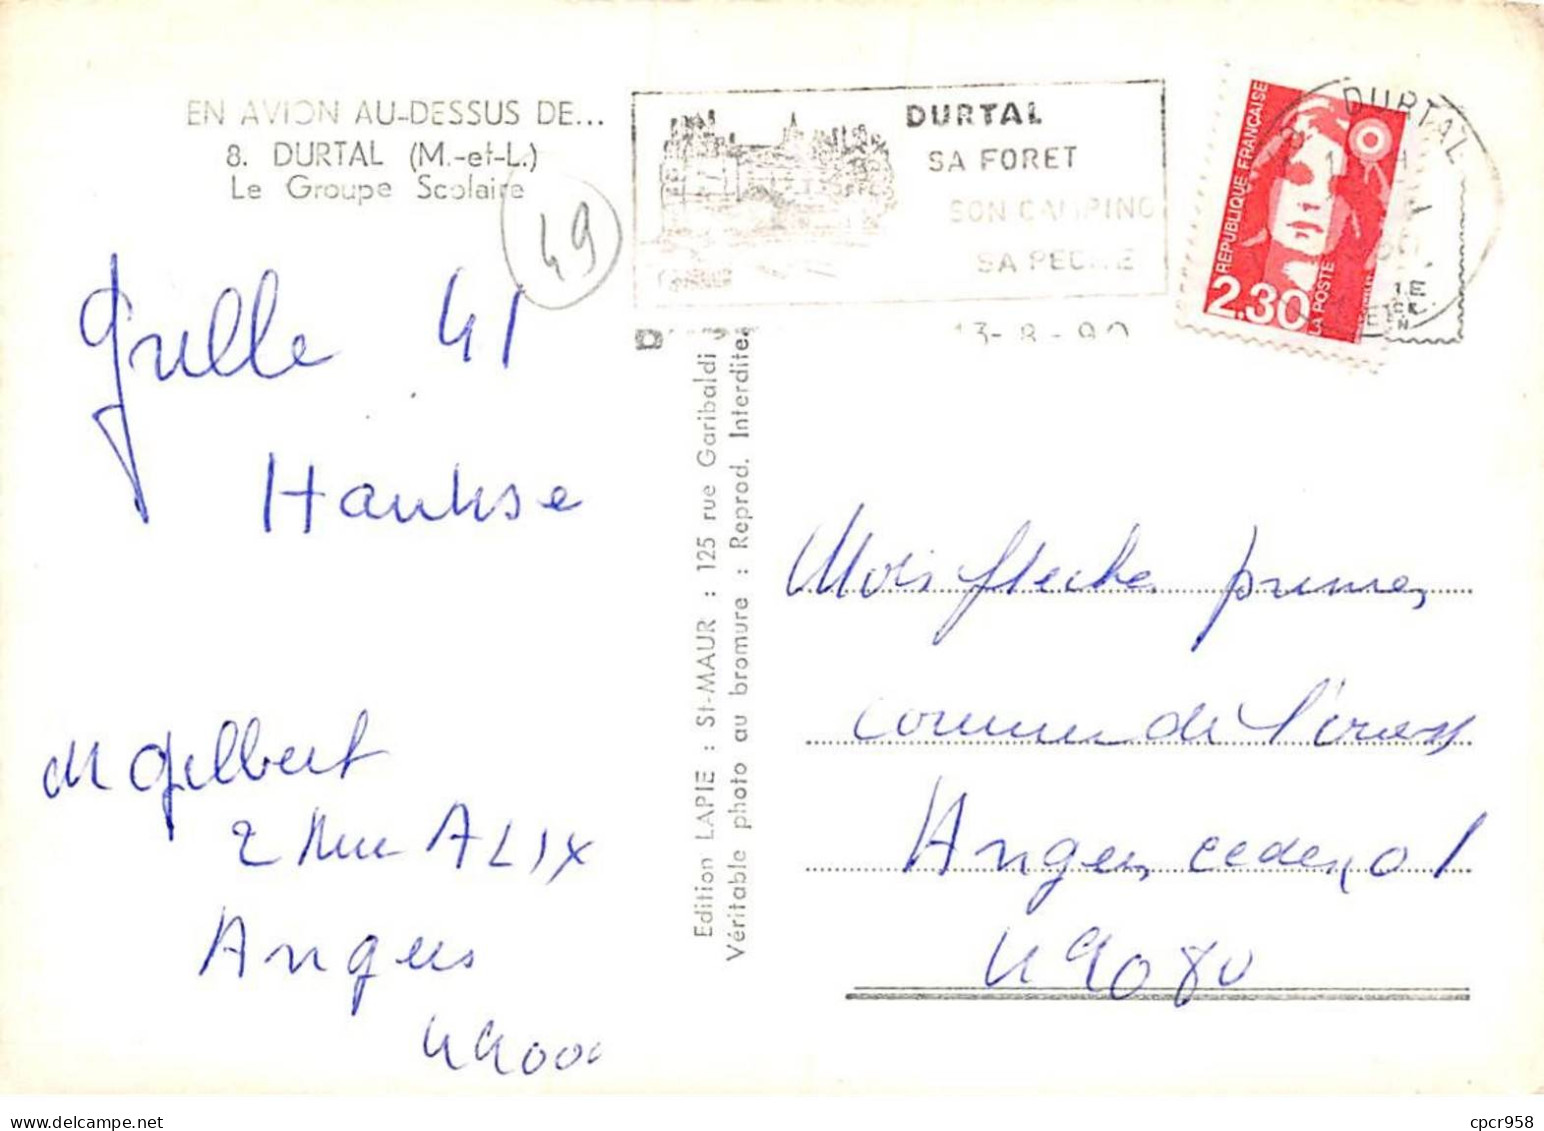 EN AVION AU-DESSUS DE...
8. DURTAL (M.-et-L.)
Le Groupe Scolaire
49
DURTAL
SA FORET
SON CAMPING
SA PECHE
13-8-90
DURTAL
REPUBLIQUE FRANÇAISE
2,30
LA POSTE
Grille 41
Edition LAPIE : St-MAUR : 125 rue Garibaldi
Véritable photo au bromure : Reprod. Interdite
Mots fleches primes
Courrier de l'ouest
Angers cedex 01
49080
M Gilbert
2 Rue ALIX
Angers
49000
cpcr958